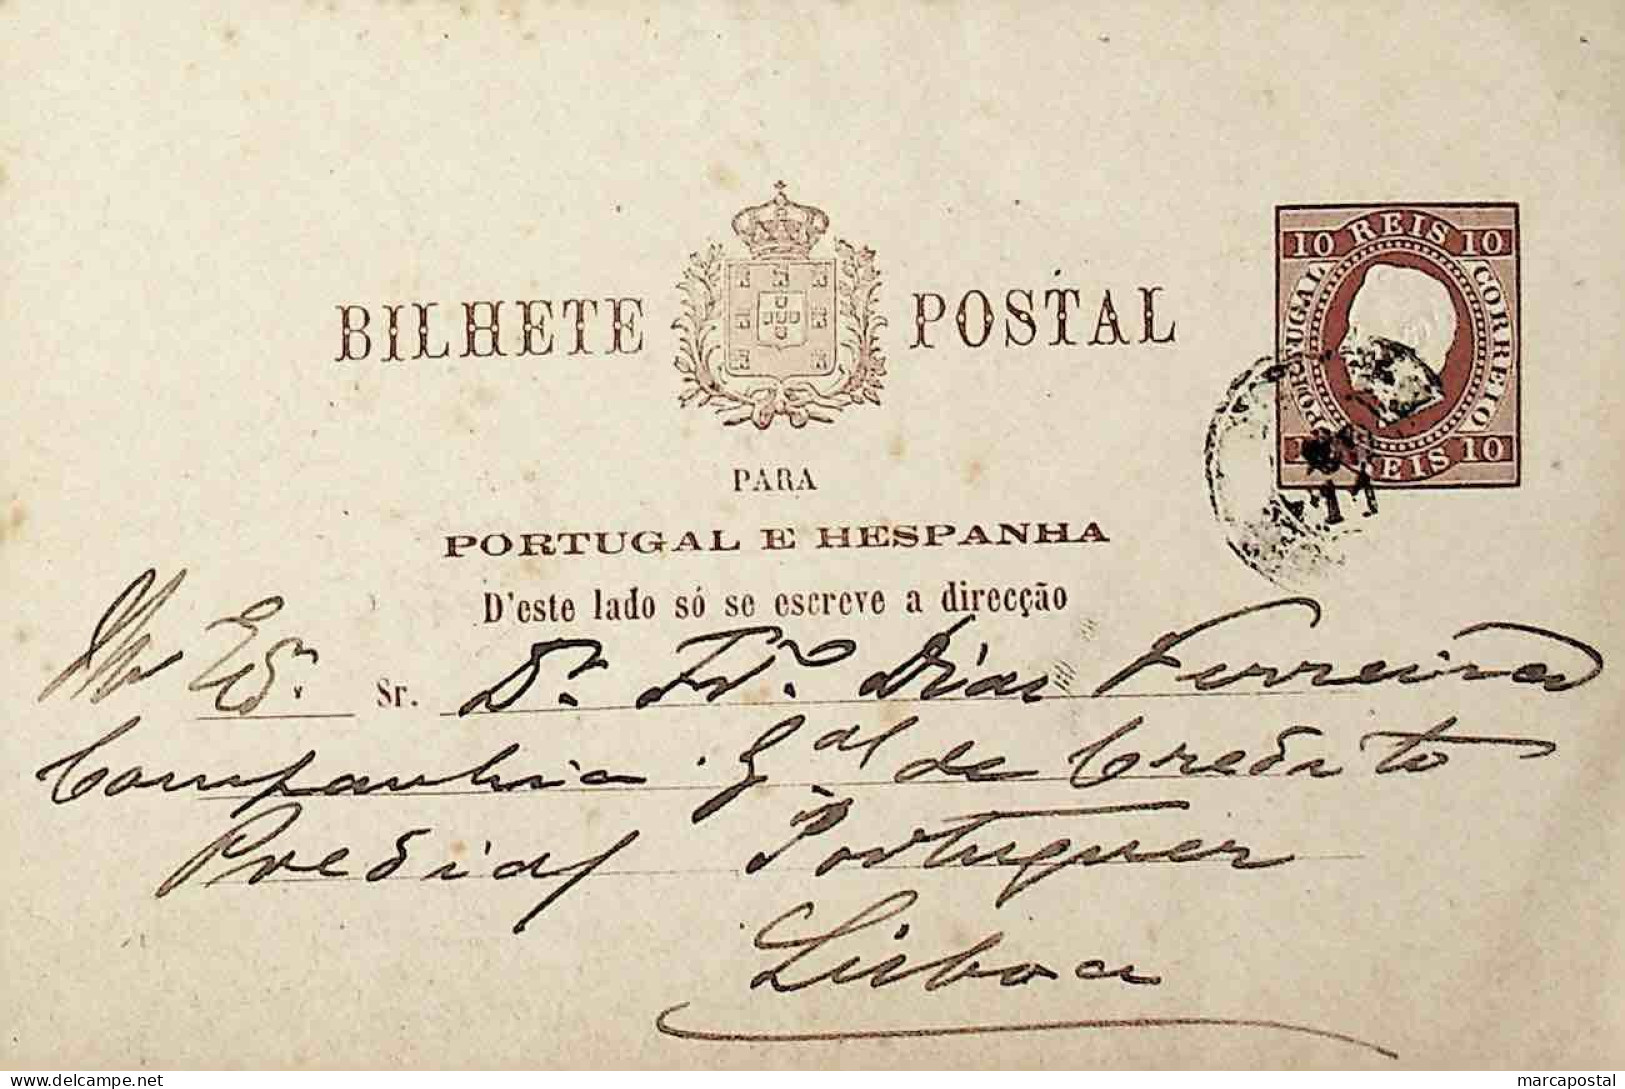 BILHETE POSTAL
10 REIS 10
PORTUGAL
CORREIO
10 REIS 10
PARA
PORTUGAL E HESPANHA
D'este lado só se escreve a direcção
Sr. Dr. Dias Ferreira
Companhia Gal de Credito
Predial Portuguez
Lisboa
delcampe.net
marcapostal